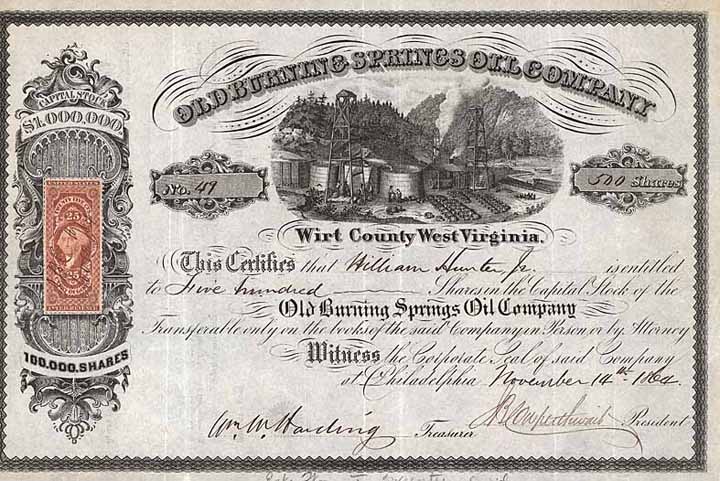 OLD BURNING SPRINGS OIL COMPANY
CAPITAL STOCK
$1,000,000
UNITED STATES
25
25
100.000.SHARES
No. 47
500 Shares
Wirt County West Virginia.
This Certifies that William Hunter, Jr. is entitled
to Five hundred Shares in the Capital Stock of the
Old Burning Springs Oil Company
Transferable only on the books of the said Company in Person or by Attorney
Witness the Corporate Seal of said Company
at Philadelphia November 14th 1864.
Wm. W. Harding Treasurer President